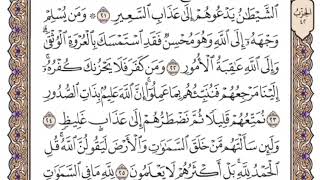 الشَّيْطَٰنُ يَدْعُوهُمْ إِلَىٰ عَذَابِ السَّعِيرِ ٢١ ۞ وَمَن يُسْلِمْ
وَجْهَهُۥٓ إِلَى اللَّهِ وَهُوَ مُحْسِنٌ فَقَدِ اسْتَمْسَكَ بِالْعُرْوَةِ الْوُثْقَىٰ ۗ
وَإِلَى اللَّهِ عَٰقِبَةُ الْأُمُورِ ٢٢ وَمَن كَفَرَ فَلَا يَحْزُنكَ كُفْرُهُۥٓ ۚ
إِلَيْنَا مَرْجِعُهُمْ فَنُنَبِّئُهُم بِمَا عَمِلُوٓا۟ ۚ إِنَّ اللَّهَ عَلِيمٌۢ بِذَاتِ الصُّدُورِ
٢٣ نُمَتِّعُهُمْ قَلِيلًا ثُمَّ نَضْطَرُّهُمْ إِلَىٰ عَذَابٍ غَلِيظٍ ٢٤
وَلَئِن سَأَلْتَهُم مَّنْ خَلَقَ السَّمَٰوَٰتِ وَالْأَرْضَ لَيَقُولُنَّ اللَّهُ ۚ قُلِ
الْحَمْدُ لِلَّهِ ۚ بَلْ أَكْثَرُهُمْ لَا يَعْلَمُونَ ٢٥ لِلَّهِ مَا فِي السَّمَٰوَٰتِ
الحزب
٤٢